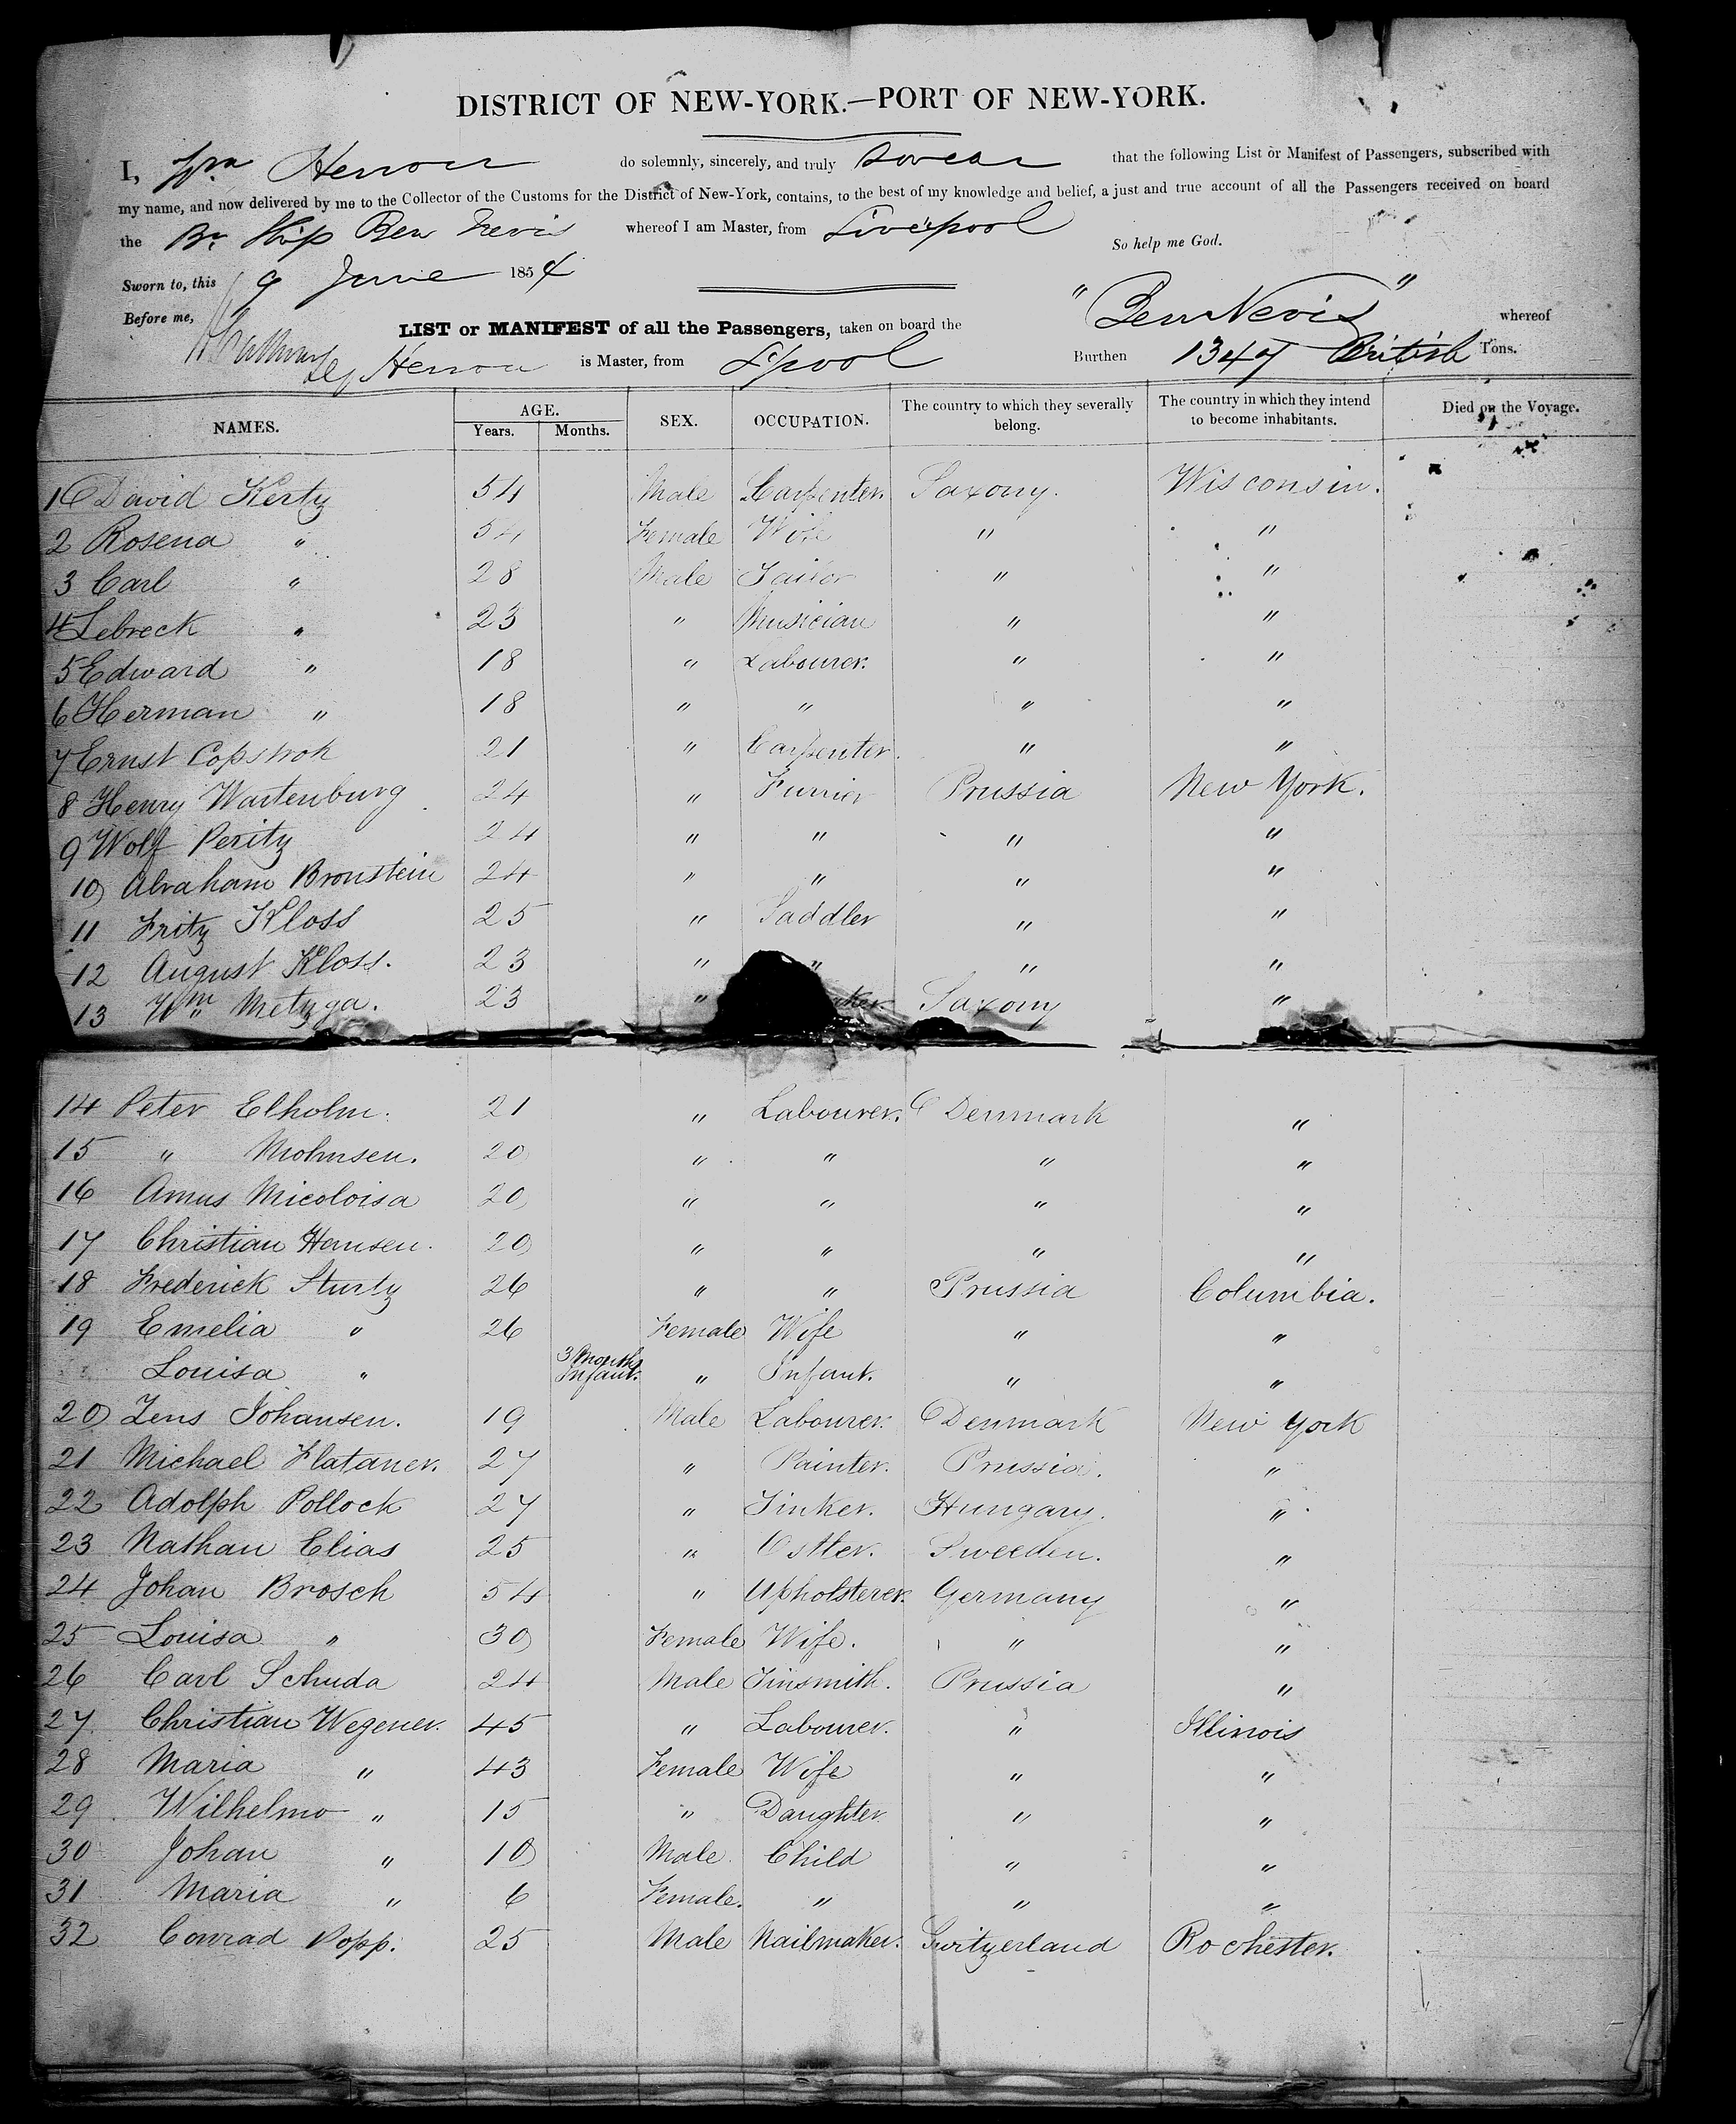 DISTRICT OF NEW-YORK.—PORT OF NEW-YORK.
I, Wm Herron do solemnly, sincerely, and truly swear that the following List or Manifest of Passengers, subscribed with
my name, and now delivered by me to the Collector of the Customs for the District of New-York, contains, to the best of my knowledge and belief, a just and true account of all the Passengers received on board
the Br Ship Ben Nevis whereof I am Master, from Liverpool So help me God.
Sworn to, this 9 June 1854
Before me,
LIST or MANIFEST of all the Passengers, taken on board the "Ben Nevis" whereof
Herron is Master, from L'pool Burthen 1347 British Tons.
NAMES. AGE. Years. Months. SEX. OCCUPATION. The country to which they severally belong. The country in which they intend to become inhabitants. Died on the Voyage.
1 David Kertz 54 Male Carpenter. Saxony. Wisconsin.
2 Rosena " 54 Female Wife " "
3 Carl " 28 Male Tailor " "
4 Lebreck " 23 " Musician " "
5 Edward " 18 " Labourer. " "
6 Herman " 18 " " " "
7 Ernst Copstrok 21 " Carpenter. " "
8 Henry Wartenburg 24 " Furrier Prussia New York.
9 Wolf Peritz 24 " " " "
10 Abraham Bronstein 24 " " " "
11 Fritz Kloss 25 " Saddler " "
12 August Kloss. 23 " " " "
13 Wm Metzga. 23 " Saxony "
14 Peter Elholm. 21 " Labourer. Denmark "
15 " Mohnsen. 20 " " " "
16 Amus Micoloisa 20 " " " "
17 Christian Hansen. 20 " " " "
18 Frederick Sturtz 26 " " Prussia Columbia.
19 Emelia " 26 Female Wife " "
Louisa " 3 Months Infant. " Infant. " "
20 Jens Johansen. 19 Male Labourer. Denmark New York
21 Michael Flataner. 27 " Painter. Prussia. "
22 Adolph Pollock 27 " Tinker. Hungary. "
23 Nathan Elias 25 " Ostler. Sweeden. "
24 Johan Brosch 54 " Upholsterer. Germany "
25 Louisa " 30 Female Wife. " "
26 Carl Schuda 24 Male Tinsmith. Prussia "
27 Christian Wegener. 45 " Labourer. " Illinois
28 Maria " 43 Female Wife " "
29 Wilhelmo " 15 " Daughter. " "
30 Johan " 10 Male Child " "
31 Maria " 6 Female. " " "
32 Conrad Popp. 25 Male Nailmaker. Switzerland Rochester.